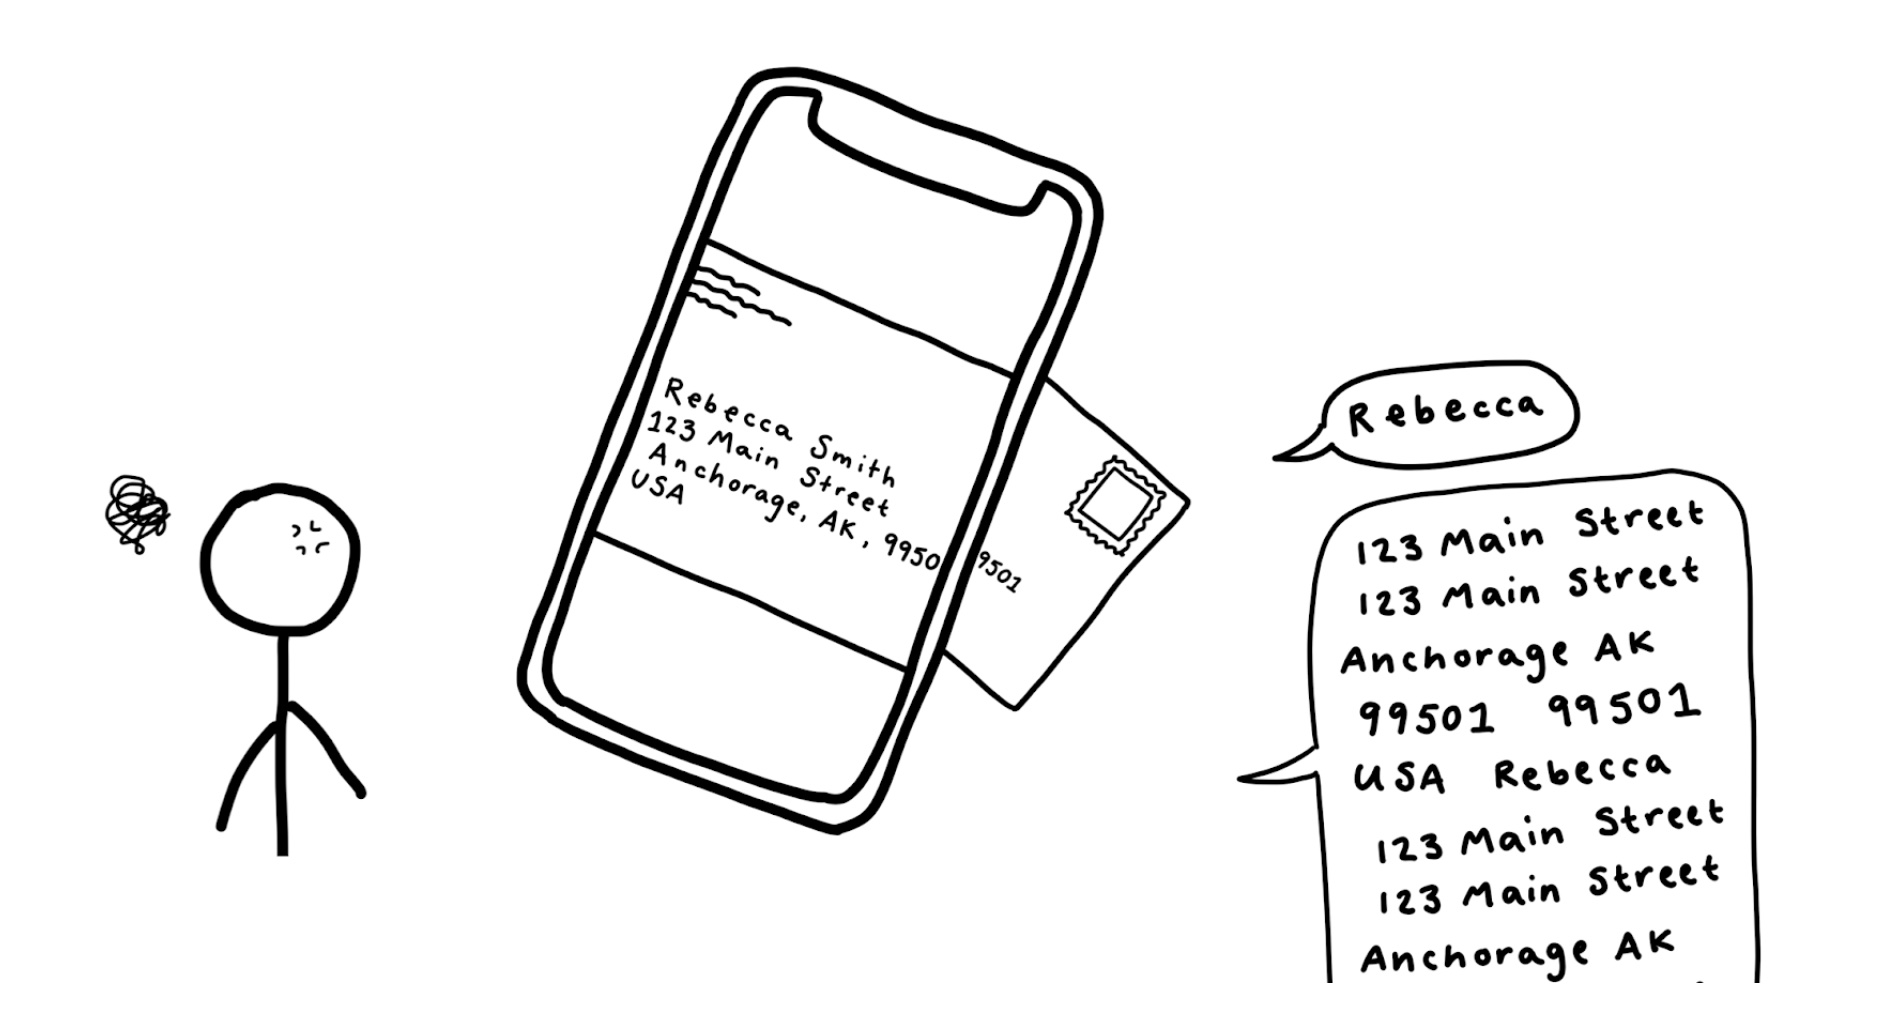 Rebecca Smith
123 Main Street
Anchorage, AK, 9950
USA
9501
Rebecca
123 Main Street
123 Main Street
Anchorage AK
99501 99501
USA Rebecca
123 Main Street
123 Main Street
Anchorage AK